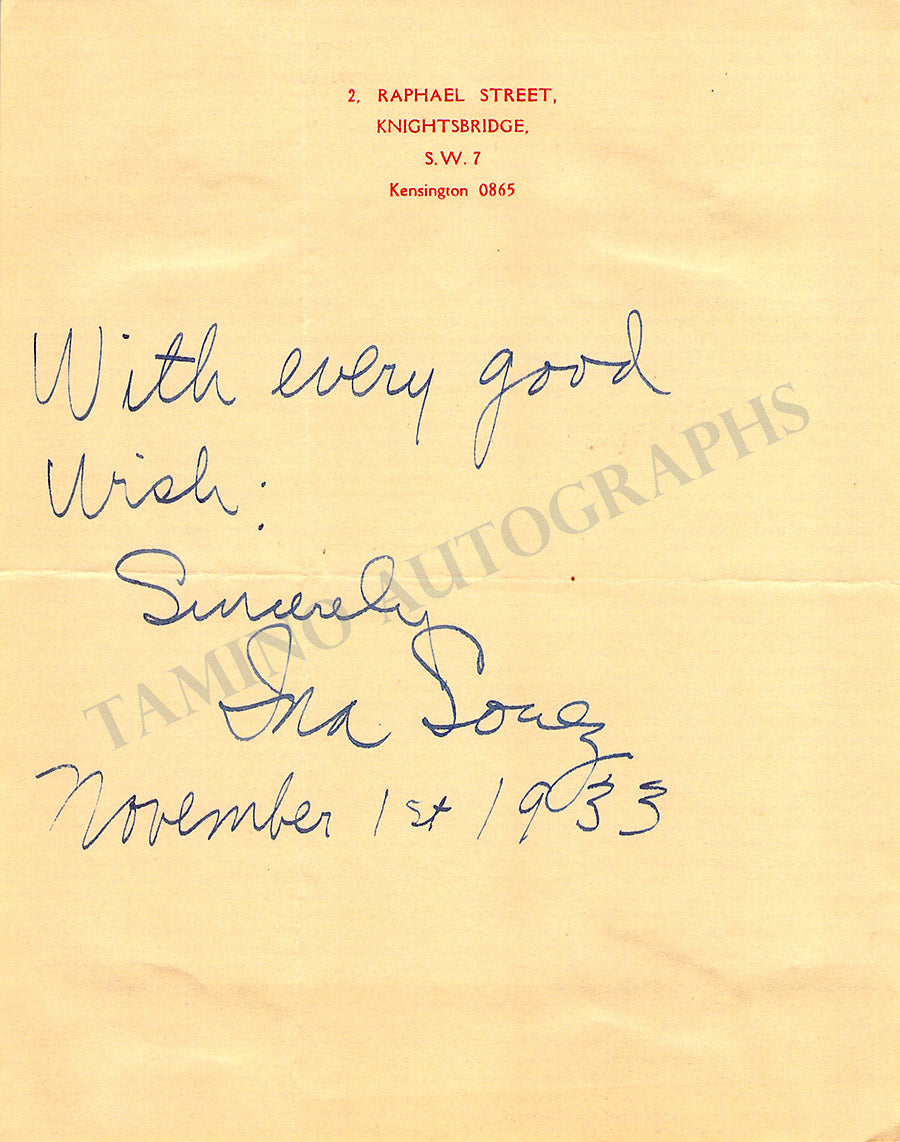 2, RAPHAEL STREET,
KNIGHTSBRIDGE,
S.W. 7
Kensington 0865
With every good
Wish:
Sincerely
Ina Souez
November 1st 1933
TAMINO AUTOGRAPHS